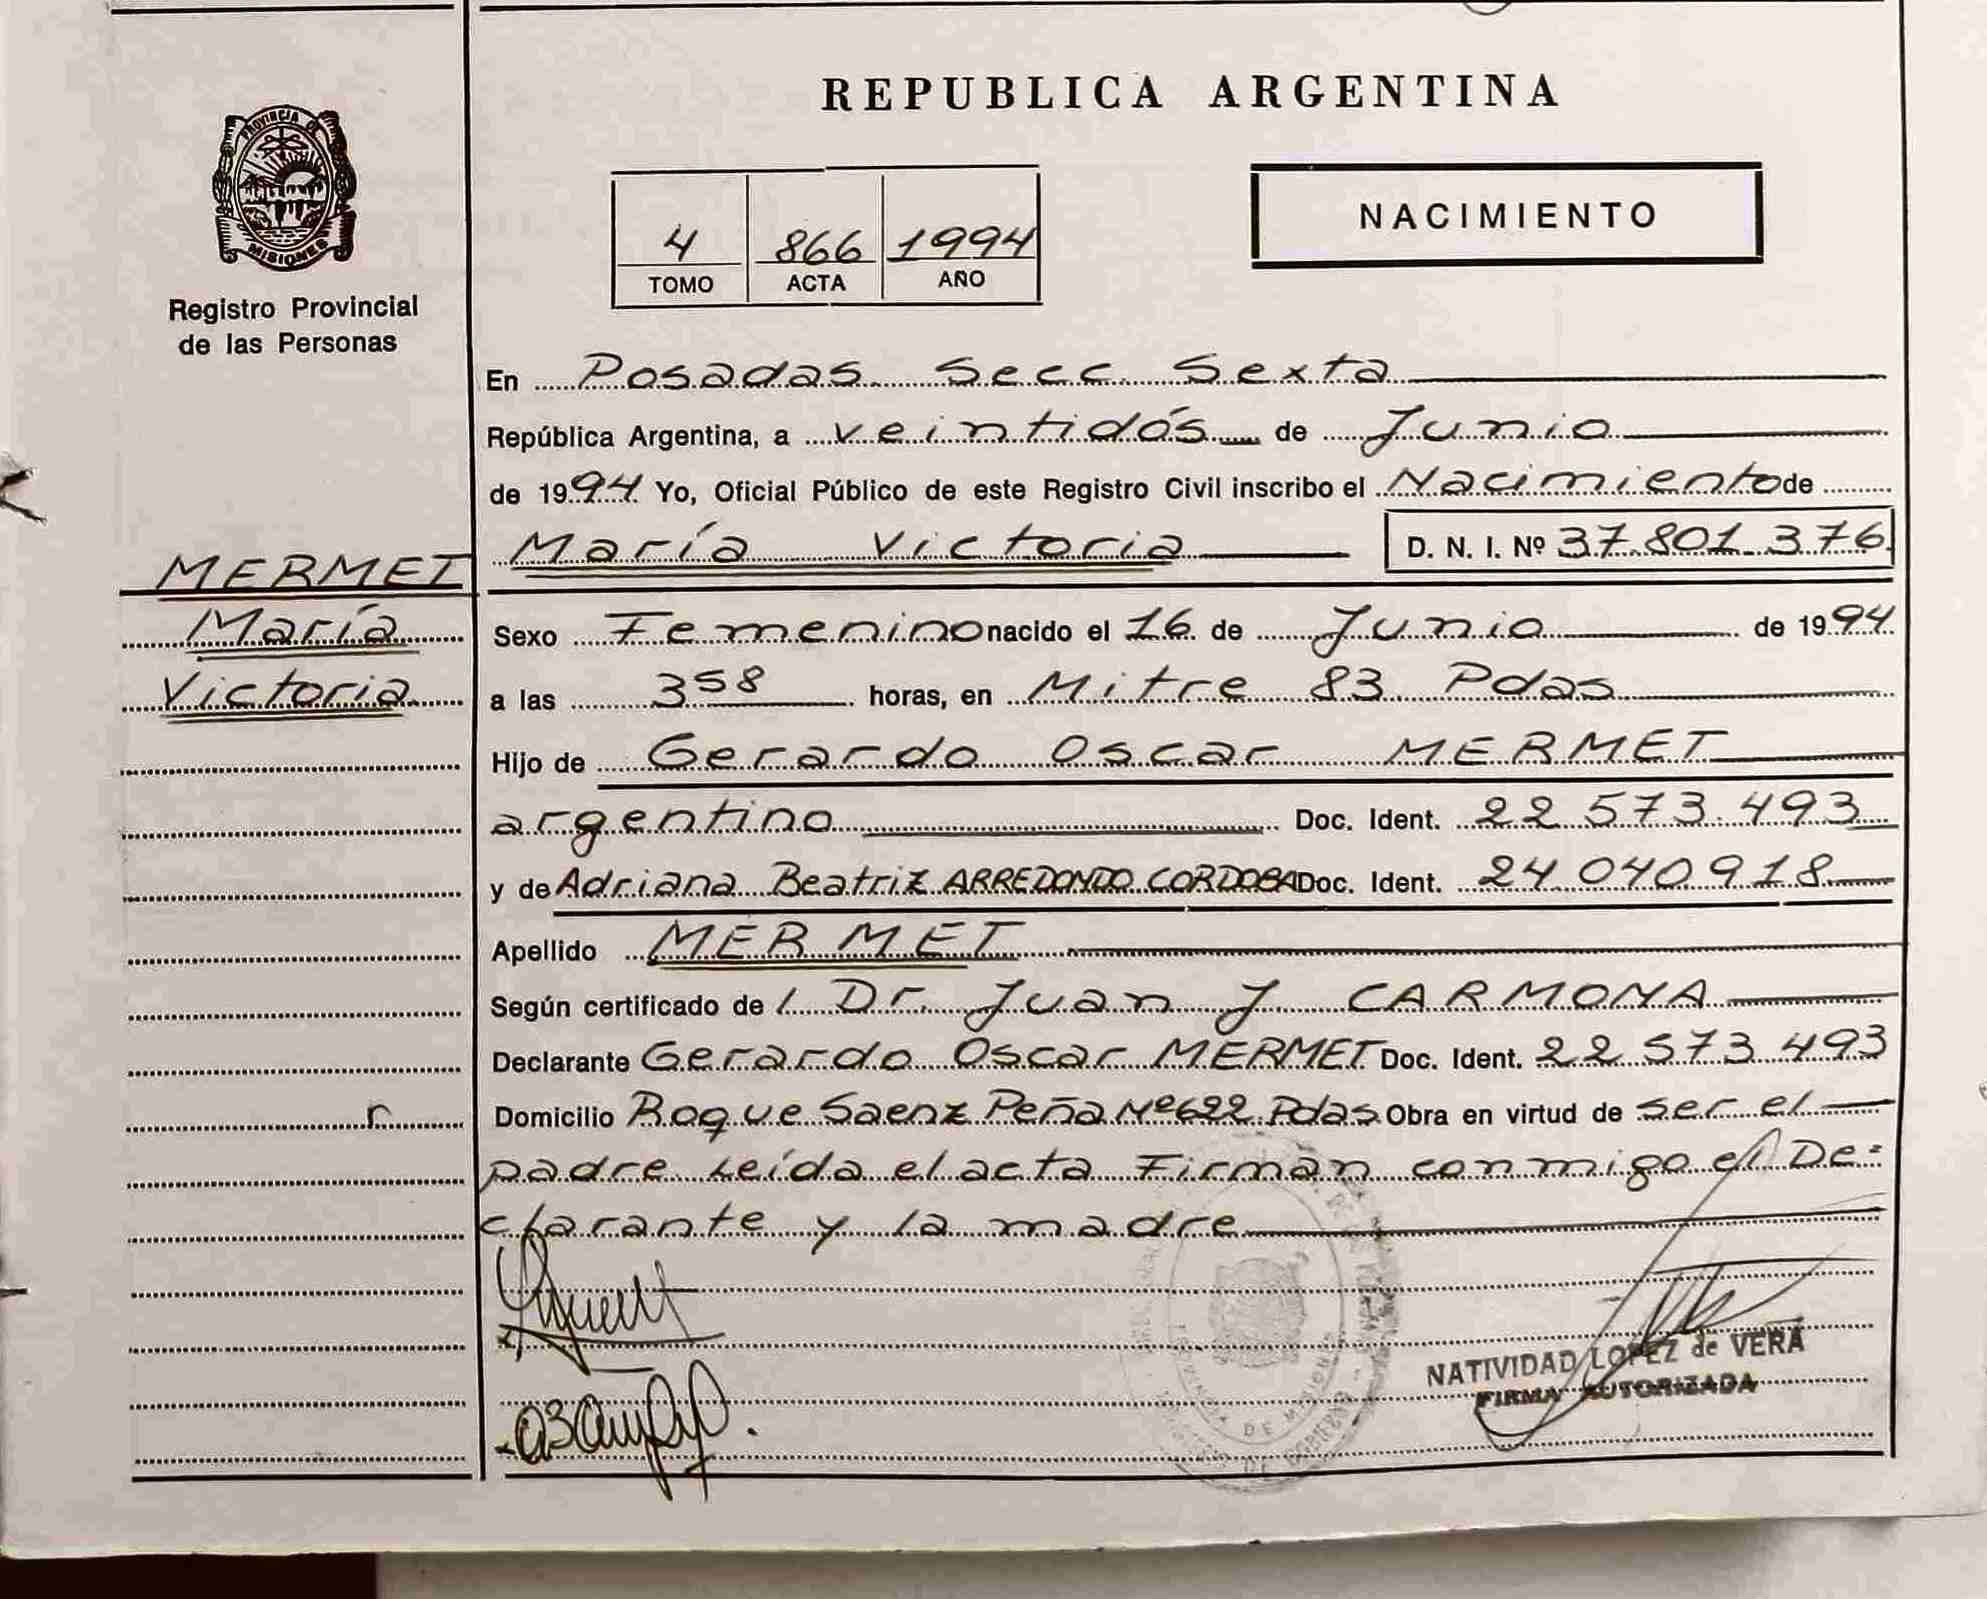 REPUBLICA ARGENTINA
PROVINCIA DE
MISIONES
Registro Provincial
de las Personas
4 866 1994
TOMO ACTA AÑO
NACIMIENTO
En Posadas Secc Sexta
República Argentina, a veintidós de Junio
de 1994 Yo, Oficial Público de este Registro Civil inscribo el Nacimiento de
María Victoria D. N. I. Nº 37.801.376
MERMET
María
Victoria
Sexo Femenino nacido el 16 de Junio de 1994
a las 3 58 horas, en Mitre 83 Pdas
Hijo de Gerardo Oscar MERMET
argentino Doc. Ident. 22 573.493
y de Adriana Beatriz ARREDONDO CORDOBA Doc. Ident. 24 040918
Apellido MERMET
Según certificado de l Dr. Juan J. CARMONA
Declarante Gerardo Oscar MERMET Doc. Ident. 22 573 493
r
Domicilio Roque Saenz Peña Nº 622 Pdas Obra en virtud de ser el
padre Leída el acta Firman conmigo el De=
clarante y la madre
NATIVIDAD LOPEZ de VERA
FIRMA AUTORIZADA